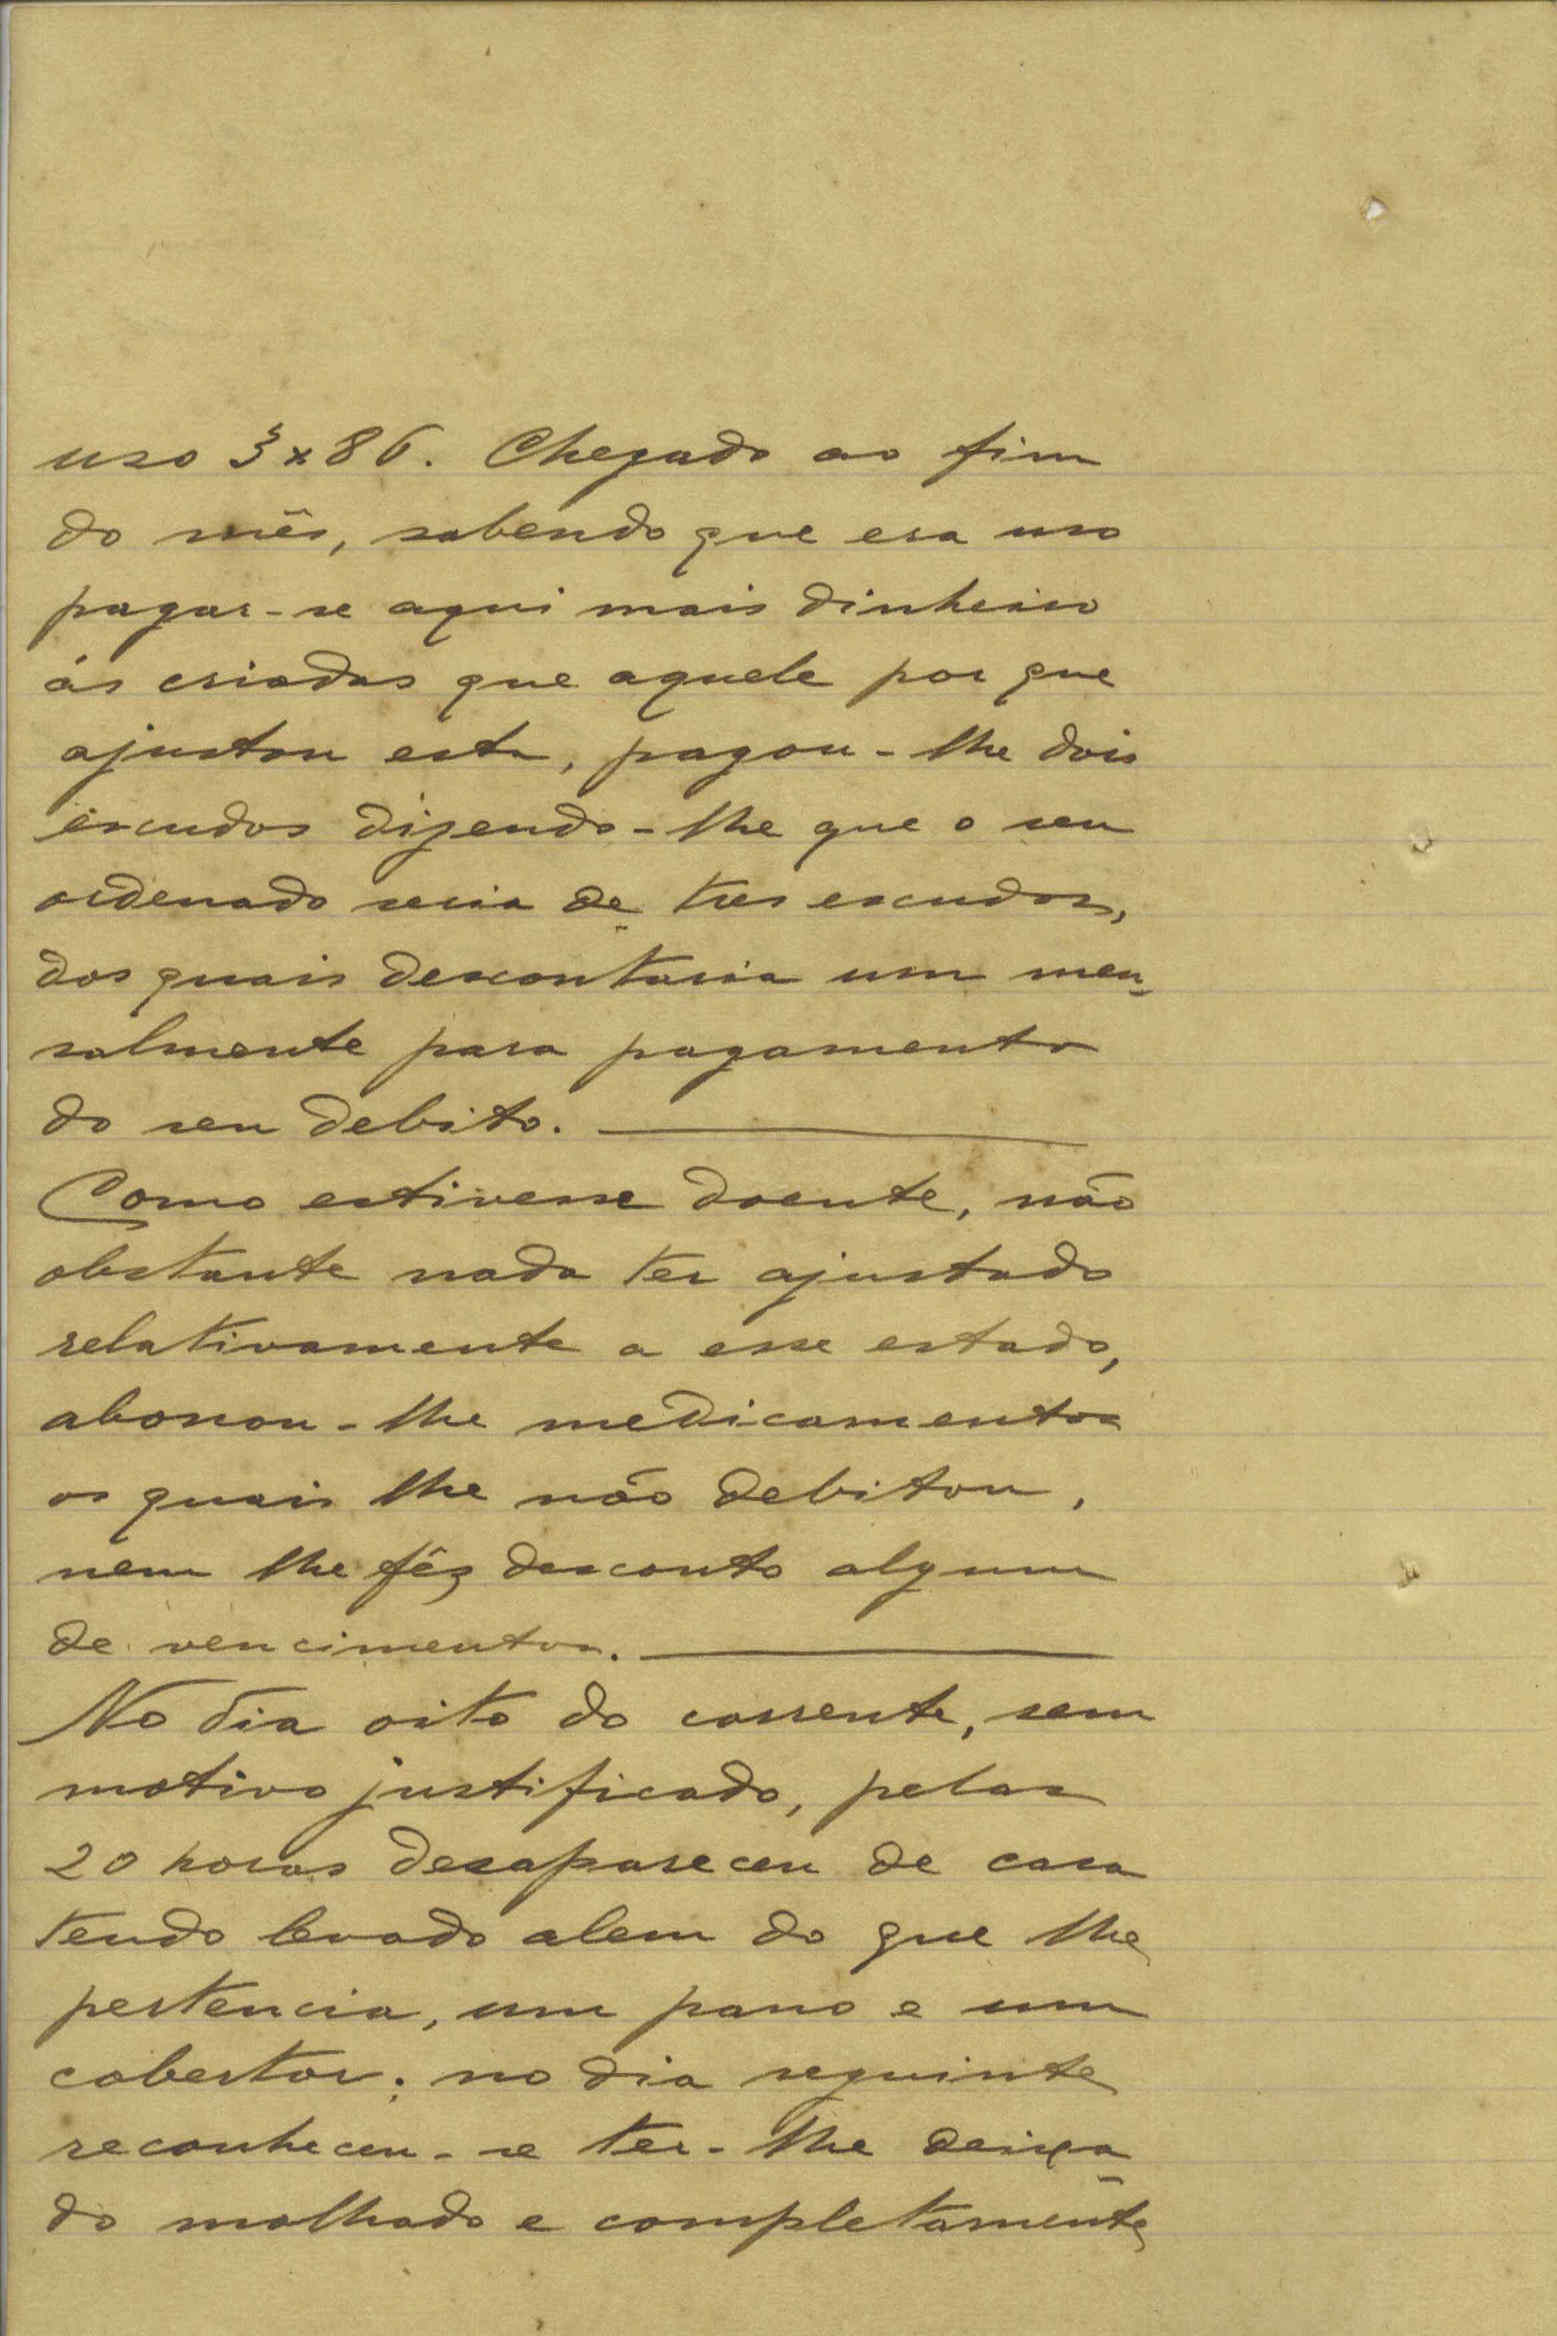 uso 3x86. Chegado ao fim
do mês, sabendo que era uso
pagar-se aqui mais dinheiro
ás criadas que aquele por que
ajustou esta, pagou-lhe dois
escudos dizendo-lhe que o seu
ordenado seria de tres escudos,
dos quais descontaria um men-
salmente para pagamento
do seu debito.
Como estivesse doente, não
obstante nada ter ajustado
relativamente a esse estado,
abonou-lhe medicamentos
os quais lhe não debitou,
nem lhe fêz desconto algum
de vencimentos.
No dia oito do corrente, sem
motivo justificado, pelas
20 horas desapareceu de casa
tendo levado alem do que lhe
pertencia, um pano e um
cobertor; no dia seguinte
reconheceu-se ter-lhe deixa-
do molhado e completamente